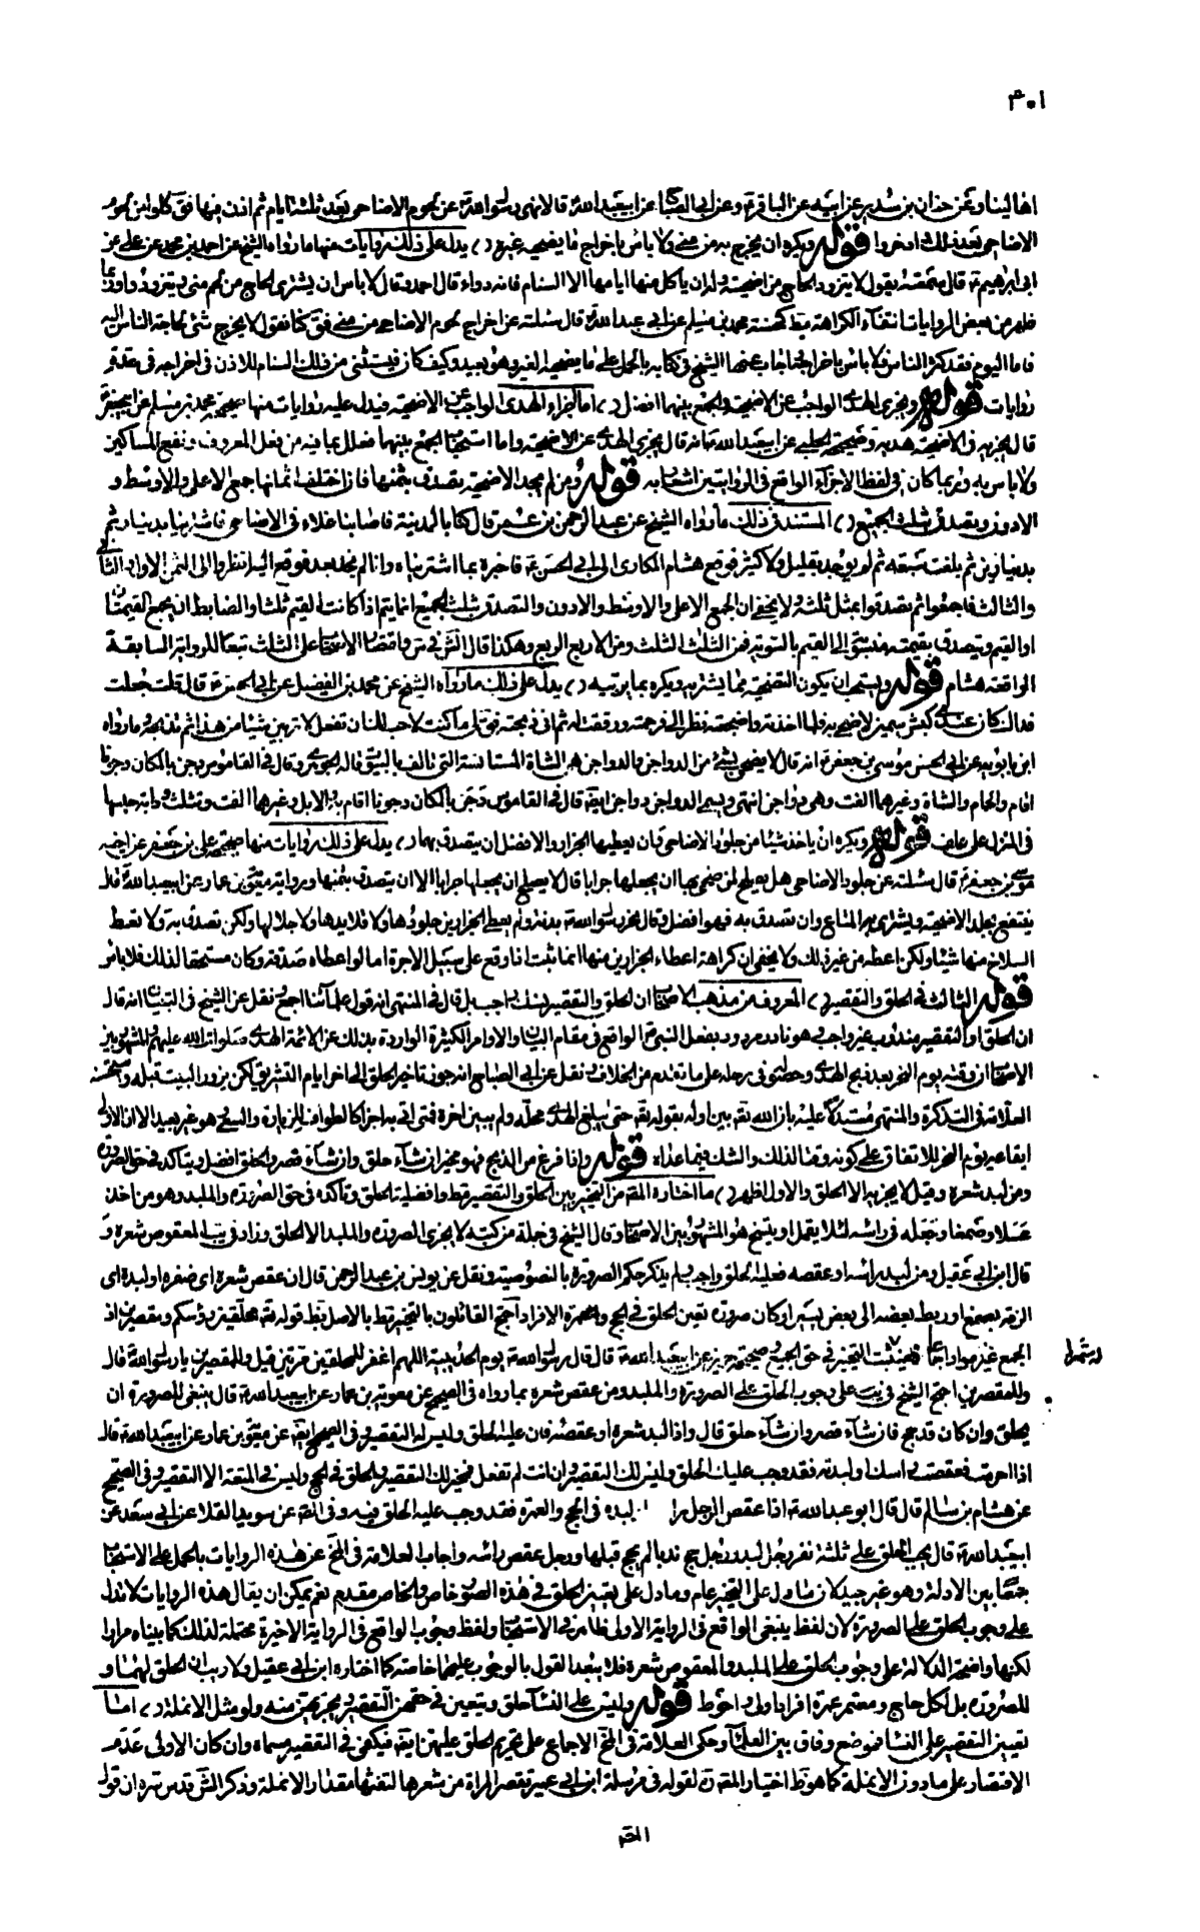 ٣٠١
اهالينا وعن حنان بن سدير عن ابيه عن الباقر ع وعن ابي الصباح عن ابيعبد الله ع قالا نهى رسول الله ص عن لحوم الاضاحي بعد ثلثة ايام ثم اذن فيها فق كلوا من لحوم
الاضاحي بعد ذلك وادخروا قوله ويكره ان يخرج به من منى ولا باس باخراج ما يضحيه غيره يدل على ذلك روايات منها ما رواه الشيخ عن احمد بن محمد عن علي عن
ابي ابرهيم ع قال سمعته يقول لا يتزود الحاج من اضحيته وله ان ياكل منها ايامها الا السنام فانه دواء قال احمد وقال لا باس ان يشترى الحاج من لحم منى ويتزوده
ظهر من بعض الروايات انتفاء الكراهة مط كحسنة محمد بن مسلم عن ابي عبد الله ع قال سئلته عن اخراج لحوم الاضاحي من منى فق كنا نقول لا يخرج شئ لحاجة الناس اليه
فاما اليوم فقد كثر الناس ولا باس باخراجه اجاب عنها الشيخ في كتابيه بالحمل على ما يضحيه الغير وهو بعيد وكيف كان فيستثنى من ذلك السنام للاذن في اخراجه في
روايات قوله ويجزى الهدى الواجب عن الاضحية والجمع بينهما افضل اما اجزاء الهدى الواجب عن الاضحية فيدل عليه روايات منها صحيحة محمد بن مسلم عن ابيجعفر ع
قال يجزيه في الاضحية هديه وصحيحة الحلبي عن ابيعبد الله ع انه قال يجزى الهدى عن الاضحية واما استحباب الجمع بينهما فعلل بما فيه من فعل المعروف ونفع المساكين
ولا باس به وربما كان في لفظ الاجزاء الواقع في الروايتين اشعار به قوله ومن لم يجد الاضحية تصدق بثمنها فان اختلفت اثمانها جمع الاعلى والاوسط و
الادون وتصدق بثلث الجميع المستند في ذلك ما رواه الشيخ عن عبد الرحمن بن عمر قال كنا بالمدينة فاصابنا غلاء في الاضاحي فاشترينا بدينار ثم
بدينارين ثم بلغت سبعة ثم لم يوجد بقليل ولا كثير فوقع هشام المكارى الى ابي الحسن ع فاخبره بما اشترينا وانا لم نجد بعد فوقع اليه انظروا الى الثمن الاول والثاني
والثالث فاجمعوا ثم تصدقوا بمثل ثلثه لا يخفى ان الجمع الاعلى والاوسط والادون والتصدق بثلث الجميع انما يتم اذا كانت القيم ثلثا والضابط ان يجمع القيمتان
او القيم ويتصدق بقيمة منسوبة الى القيم بالسوية فمن الثلث الثلث ومن الاربع الربع وهكذا قال الش في س واقتصار الاصحاب على الثلث تبعا للرواية السابقة
الواقعة هشام قوله ويستحب ان يكون التضحية بما يشتريه ويكره بما يربيه يدل على ذلك ما رواه الشيخ عن محمد بن الفضيل عن ابي الحسن ع قال قلت جعلت
فداك كان عندى كبش سمين لاضحى به فلما اخذته واضجعته نظر الى فرحمته ورققت له ثم انى ذبحته فق لي ما كنت لاحب لك ان تفعل لا تربين شيئا من هذا ثم تذبحه وما رواه
ابن بابويه عن ابي الحسن موسى بن جعفر ع انه قال لا يضحى بشئ من الدواجن والدواجن هى الشاة المستانسة التي تالف البيت قاله الجوهرى وقال في القاموس دجن بالمكان دجونا
اقام والحمام والشاة وغيرهما الفت وهي دواجن انتهى ويسمى الدواجن رواجن ايضا قال في القاموس رجن بالمكان رجونا اقام به الابل وغيرها الفت وتثلث ودابته حبسها
في المنزل على علف قوله ويكره ان ياخذ شيئا من جلود الاضاحي وان يعطيها الجزار والافضل ان يتصدق بها يدل على ذلك روايات منها صحيحة علي بن جعفر عن اخيه
موسى بن جعفر ع قال سئلته عن جلود الاضاحي هل يصلح لمن ضحى بها ان يجعلها جرابا قال لا يصلح ان يجعلها جرابا الا ان يتصدق بثمنها ورواية معوية بن عمار عن ابيعبد الله ع قال
ينتفع بجلد الاضحية ويشترى به المتاع وان تصدق به فهو افضل وقال نحر رسول الله ص بدنة ولم يعط الجزارين جلودها ولا قلايدها ولا جلالها ولكن تصدق به ولا تعط
السلاخ منها شيئا ولكن اعطه من غير ذلك ولا يخفى ان كراهة اعطاء الجزارين منها انما ثبت اذا وقع على سبيل الاجرة اما لو اعطاه صدقة وكان مستحقا لذلك فلا باس
قوله الثالث في الحلق والتقصير المعروف من مذهب الاصحاب ان الحلق والتقصير نسك واجب بل قال في المنتهى انه قول علمائنا اجمع ونقل عن الشيخ في التبيان انه قال
ان الحلق او التقصير مندوب غير واجب وهو نادر مردود بفعل النبي ص الواقع في مقام البيان والاوامر الكثيرة الواردة بذلك عن الائمة الهدى صلوات الله عليهم والمشهور بين
الاصحاب ان وقته يوم النحر بعد ذبح الهدى وحصوله في رحله على ما تقدم من الخلاف ونقل عن ابي الصلاح انه جوز تاخير الحلق الى اخر ايام التشريق لكن يزور البيت قبله واستحسنه
العلامة في التذكرة والمنتهى مستدلا عليه بان الله تع بين اوله بقوله تع حتى يبلغ الهدى محله ولم يبين اخره فمتى اتى به اجزاه كالطواف للزيارة والسعي وهو غير بعيد الا ان الاولى
ايقاعه يوم النحر للاتفاق على كونه وقتا لذلك والشك فيما عداه قوله واذا فرغ من الذبح فهو مخير ان شاء حلق وان شاء قصر والحلق افضل ويتاكد في حق الصرورة
ومن لبد شعره وقيل لا يجزيه الا الحلق والاول اظهر ما اختاره المصنف من التخيير بين الحلق والتقصير مط وافضلية الحلق وتاكده في حق الصرورة والملبد وهو من اخذ
عسلا وصمغا وجعله في راسه لئلا يقمل او يتسخ هو المشهور بين الاصحاب وقال الشيخ في جملة من كتبه لا يجزى الصرورة والملبد الا الحلق وزاد في يب المعقوص شعره و
قال ابن ابي عقيل ومن لبد راسه او عقصه فعليه الحلق واجب ولم يذكر حكم الصرورة بالخصوصية ونقل عن يونس بن عبد الرحمن قال ان عقص شعره اى ضفره او لبده اى
الزمه بصمغ او ربط بعضه الى بعض بسير او كان صرورة تعين الحلق في الحج والعمرة الافراد احتج القائلون بالتخيير مط بالاصل وقوله تع محلقين رؤسكم ومقصرين اذ
الجمع غير مراد اجماعا فيثبت التخيير في حق الجميع وصحيحة حريز عن ابيعبد الله ع قال قال رسول الله ص يوم الحديبية اللهم اغفر للمحلقين مرتين قيل وللمقصرين يا رسول الله قال
وللمقصرين احتج الشيخ في يب على وجوب الحلق على الصرورة والملبد ومن عقص شعره بما رواه في الصحيح عن معوية بن عمار عن ابيعبد الله ع قال ينبغى للصرورة ان
يحلق وان كان قد حج فان شاء قصر وان شاء حلق قال واذا لبد شعره او عقصه فان عليه الحلق وليس له التقصير وفي الصحيح ايضا عن معوية بن عمار عن ابيعبد الله ع قال
اذا احرمت فعقصت راسك او لبدته فقد وجب عليك الحلق وليس لك التقصير وان انت لم تفعل فمخير لك التقصير والحلق في الحج وليس في المتعة الا التقصير وفي الصحيح
عن هشام بن سالم قال قال ابو عبد الله ع اذا عقص الرجل را لبده في الحج والعمرة فقد وجب عليه الحلق عن سويد القلا عن ابي سعد عن
ابيعبد الله ع قال يجب الحلق على ثلثة نفر رجل لبد ورجل حج ندبا لم يحج قبلها ورجل عقص راسه واجاب العلامة في المخ عن هذه الروايات بالحمل على الاستحباب
جمعا بين الادلة وهو غير جيد لان ما دل على التخيير عام وما دل على تعيين الحلق في هذه الصور خاص والخاص مقدم نعم يمكن ان يقال هذه الروايات لا تدل
على وجوب الحلق على الصرورة لان لفظ ينبغى الواقع في الرواية الاولى ظاهر في الاستحباب ولفظ وجوب الواقع في الرواية الاخيرة محتملة لذلك كما بيناه مرارا
لكنها واضحة الدلالة على وجوب الحلق على الملبد والمعقوص شعره فلا يبعد القول بالوجوب عليهما خاصة كما اختاره ابن ابي عقيل ولا ريب ان الحلق لهما و
للصرورة بل لكل حاج ومعتمر عمرة افراد اولى واحوط قوله وليس على النساء حلق ويتعين في حقهن التقصير ويجزيهن منه ولو مثل الانملة اما
تعيين التقصير على النساء فموضع وفاق بين العلماء وحكى العلامة في المخ الاجماع على تحريم الحلق عليهن ايضا فيكفى في التقصير مسماه وان كان الاولى عدم
الاقتصار على ما دون الانملة كما هو ظ اختيار المصنف لقوله في مرسلة ابن ابي عمير تقصر المراة من شعرها لتفثها مقدار الانملة وذكر الش قدس سره ان قول
المص